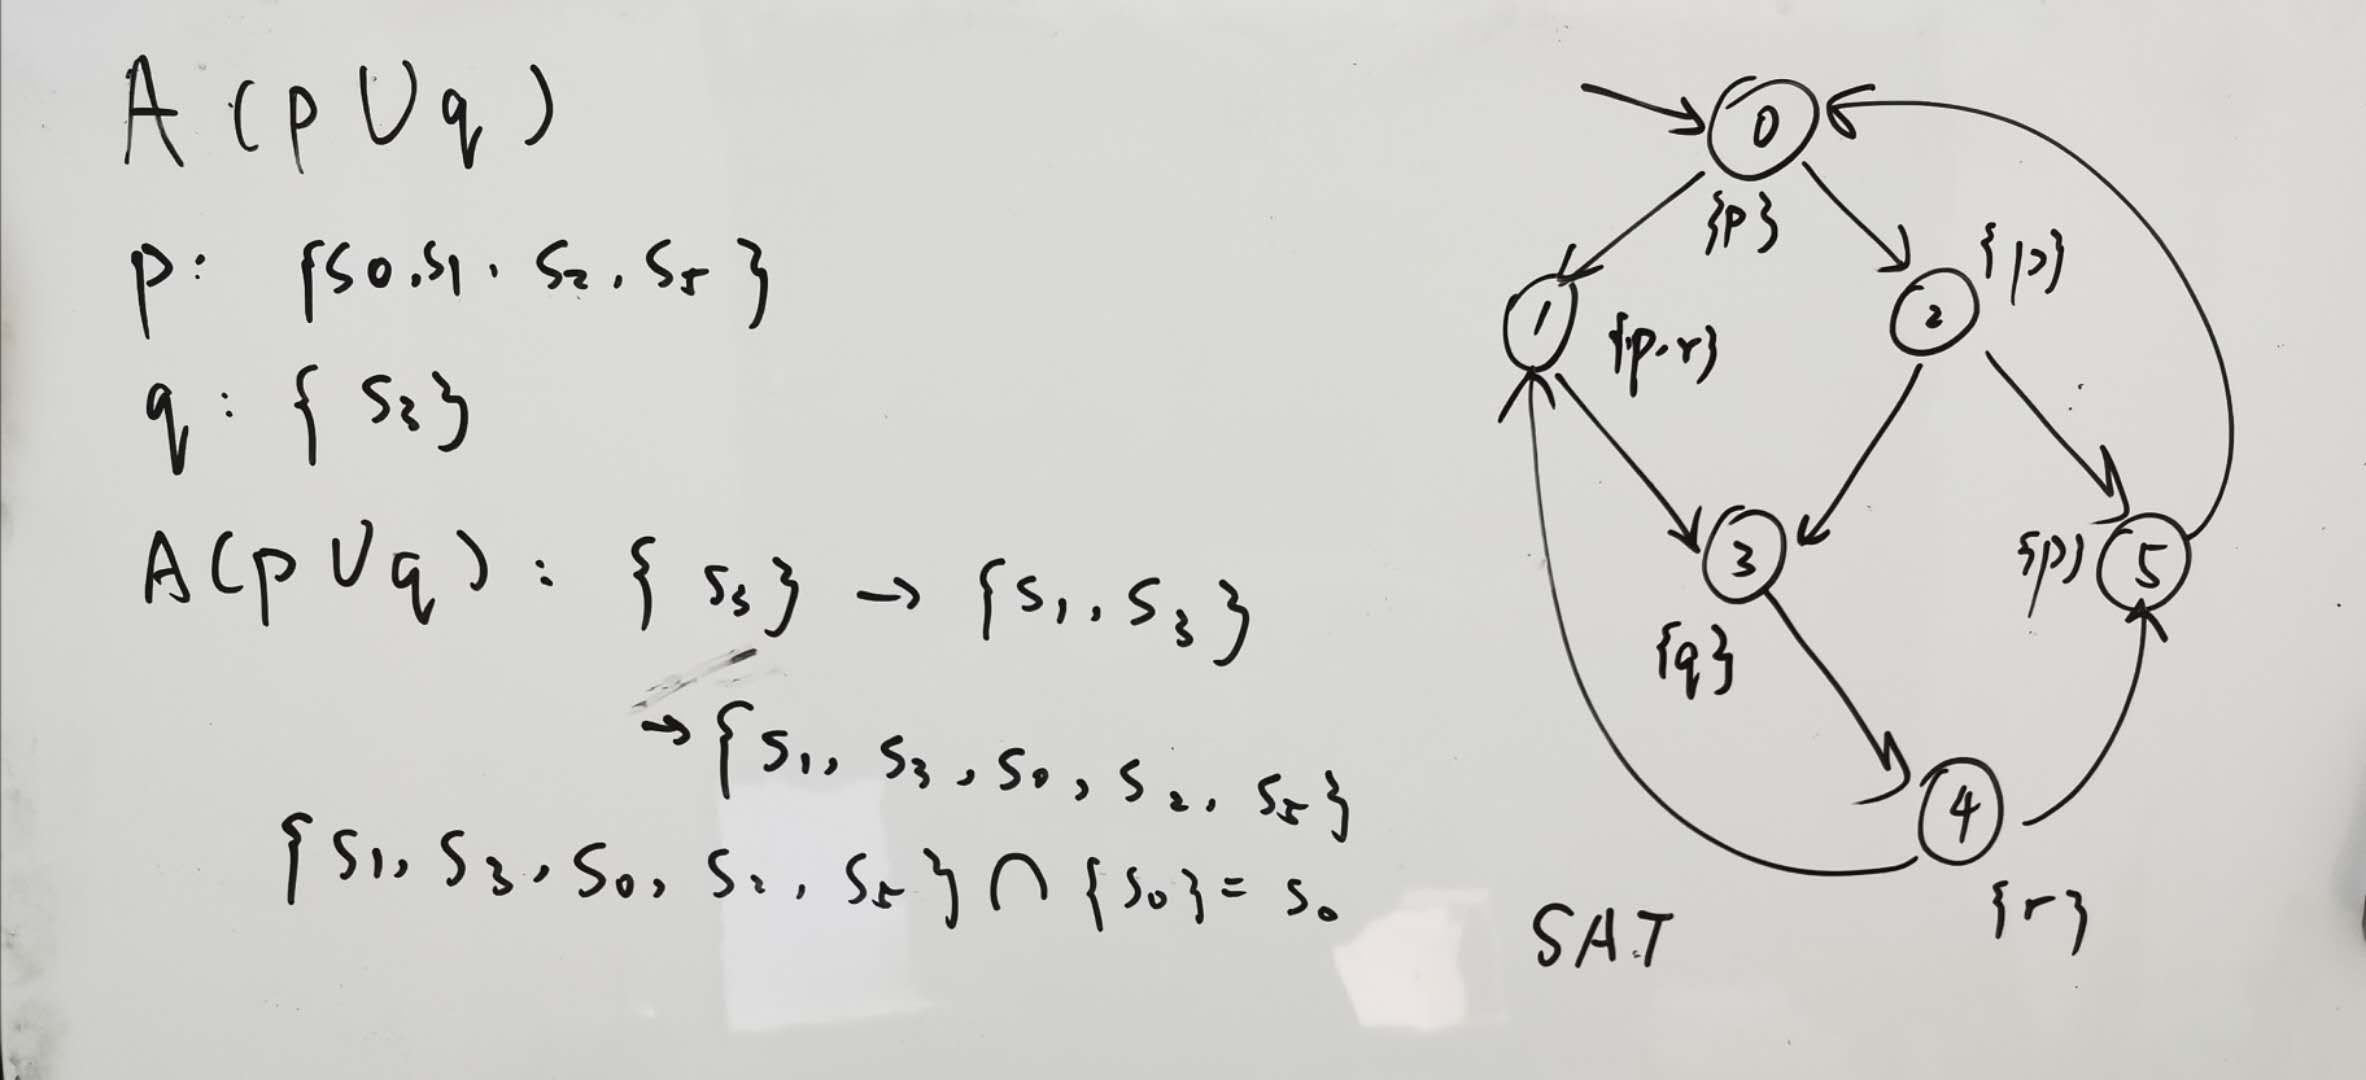 A(p U q)
p: {s0, s1, s2, s5}
q: {s3}
A(p U q): {s3} → {s1, s3}
→ {s1, s3, s0, s2, s5}
{s1, s3, s0, s2, s5} ∩ {s0} = s0
SAT
0
{p}
1
{p, r}
2
{p}
3
{q}
5
{p}
4
{r}